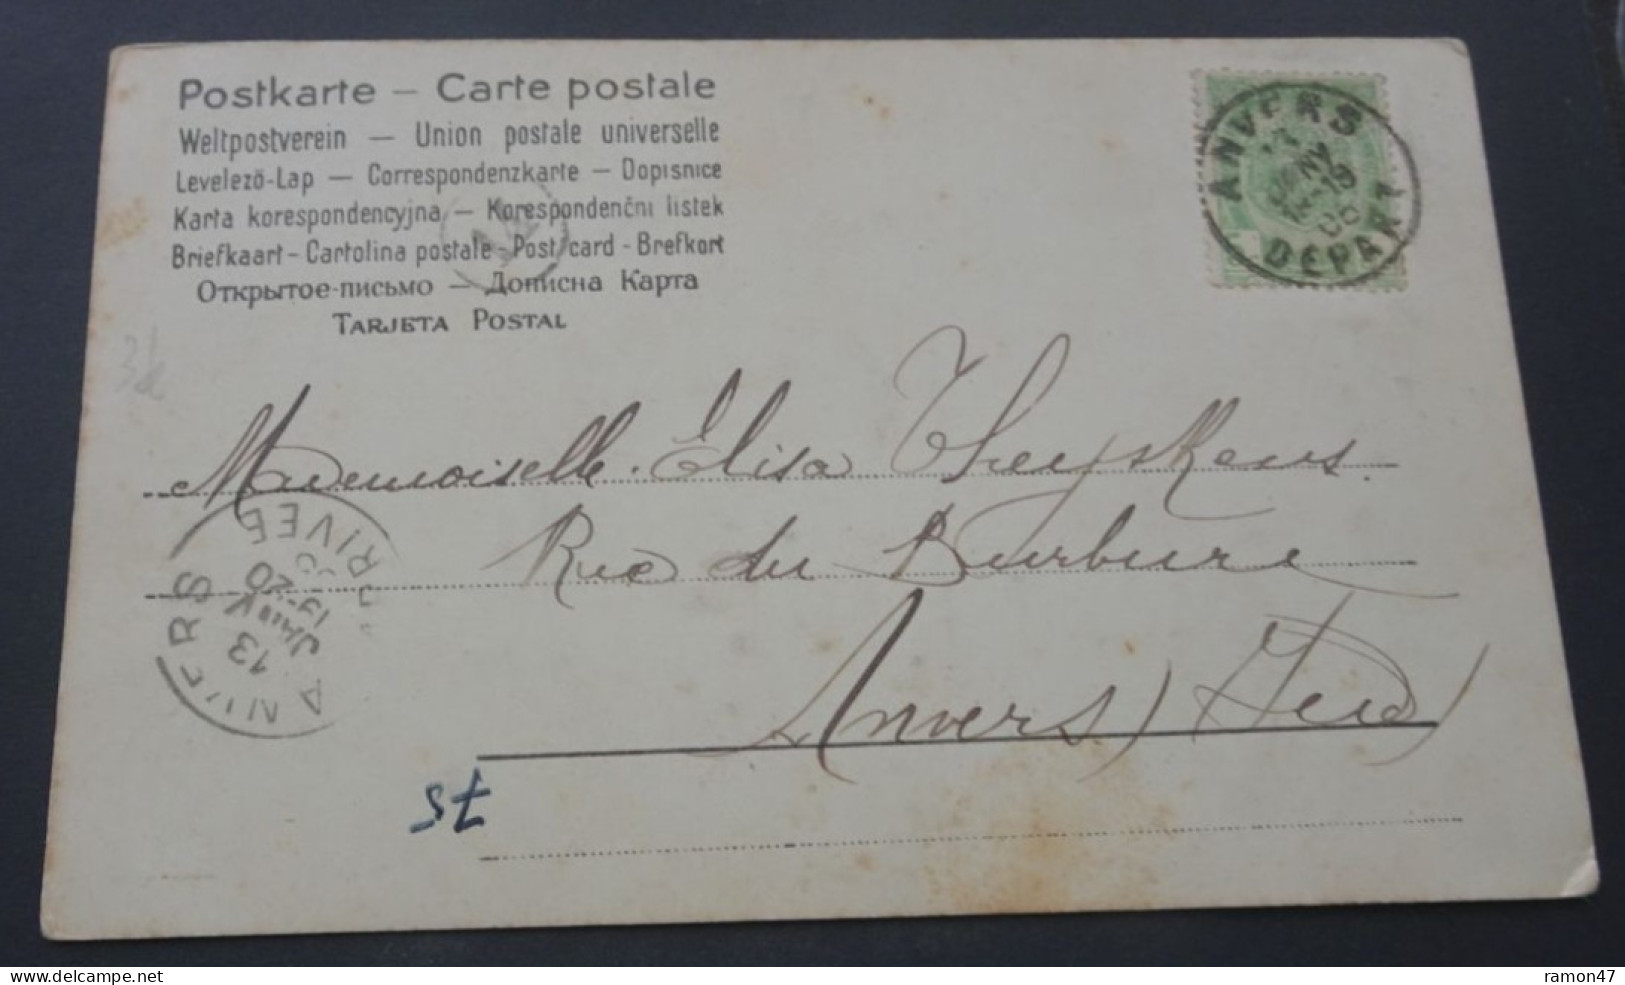 Postkarte – Carte postale
Weltpostverein — Union postale universelle
Levelező-Lap — Correspondenzkarte — Dopisnice
Karta korespondencyjna — Korespondenčni listek
Briefkaart - Cartolina postale - Post card - Brefkort
Открытое-письмо — Дописна Карта
TARJETA POSTAL
ANVERS
DEPART
Mademoiselle Élisa Theyskens.
Rue du Burbure
Anvers (Sud)
ANVERS
13 JANV
19-20
ARRIVEE
st
delcampe.net
ramon47